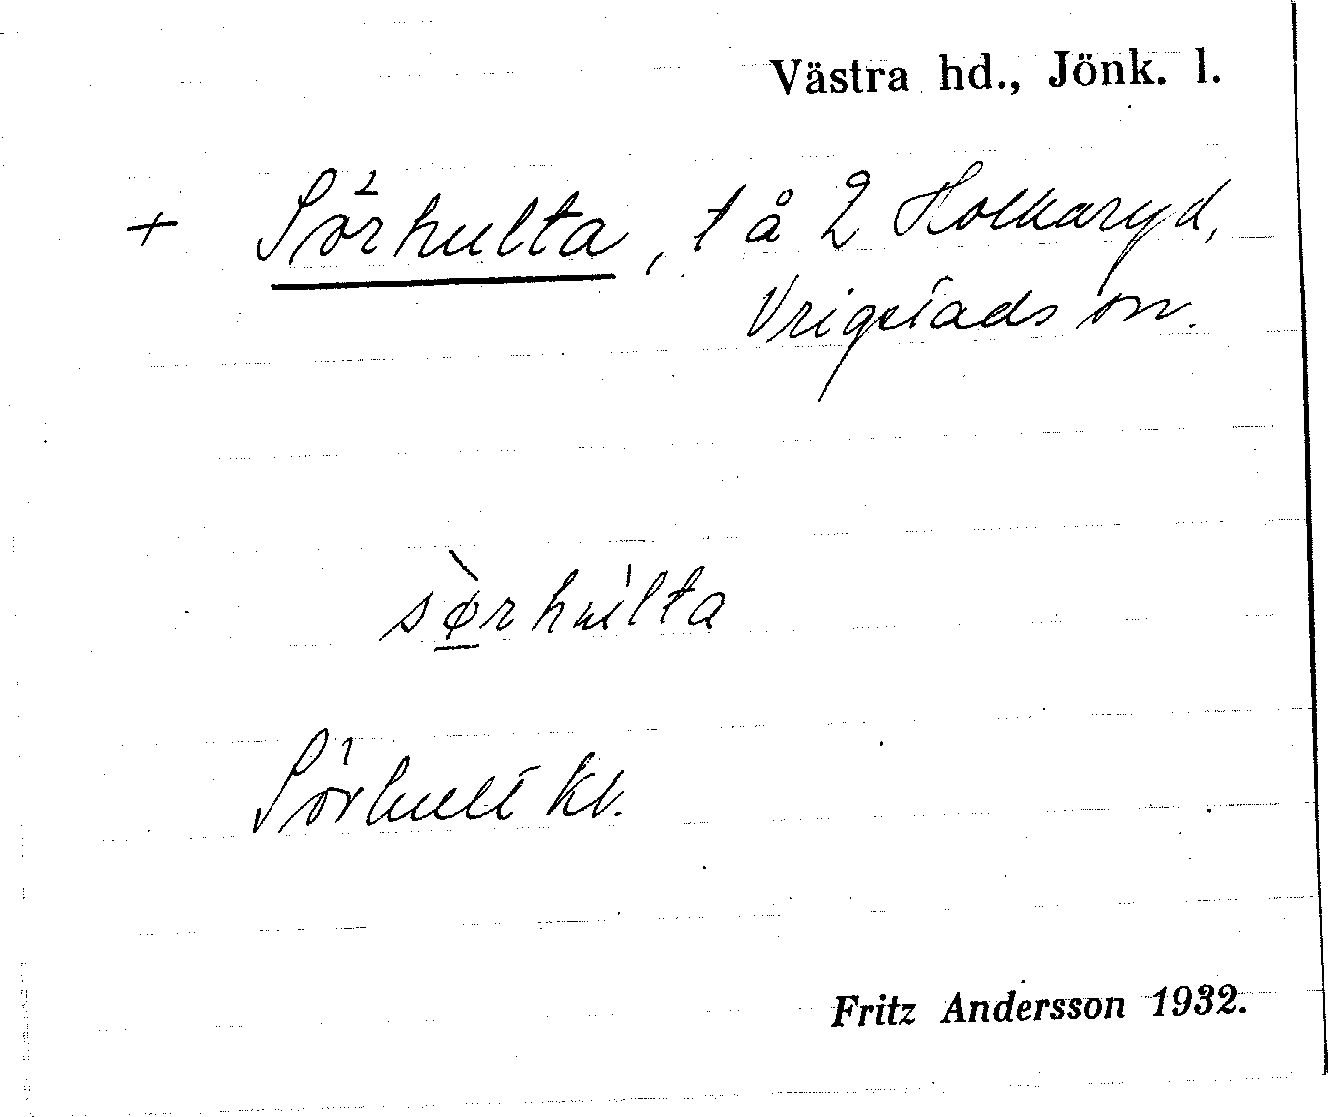 Västra hd., Jönk. l.
+ Sörhulta, t å 2 Holkaryd,
Vrigstads sn.
sø̀rhùlta
Sörhult kl.
Fritz Andersson 1932.